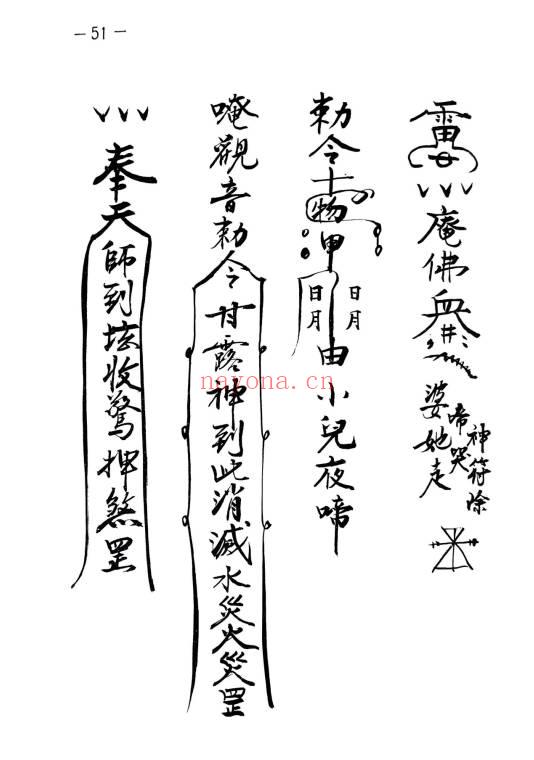 — 51 —
雷
庵佛
婆她走
啼哭
神符除
勅令
日月
日月
由小兒夜啼
唵觀音勅令甘露神到此消滅水災火災罡
奉天師到垓收驚押煞罡
nayona.cn